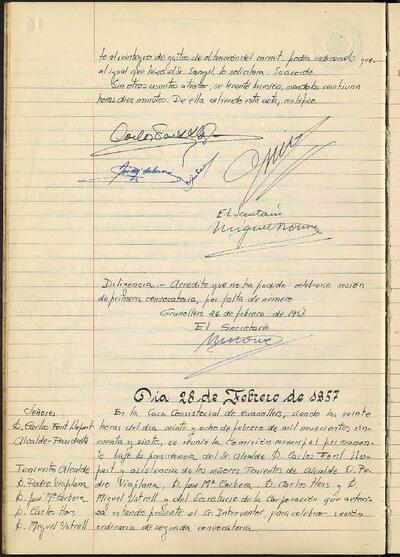 to el reintegro de gastos de obtención del carnet, podía indicársele que,
al igual que hizo el Sr. Sangil, lo solicitara. Se acordó.
Sin otros asuntos a tratar, se levantó la sesión, siendo las veintiuna
horas diez minutos. De ella extiendo esta acta, certifico.
El Secretario
Diligencia.- Acredito que no ha podido celebrarse sesión
de primera convocatoria, por falta de número
Granollers 26 de febrero de 1957
El Secretario
Día 28 de Febrero de 1957
Señores
D. Carlos Font Llopart
Alcalde-Presidente
Teniente Alcalde
D. Pedro Viaplana
D. José Mª Corbera
D. Carlos Hors
D. Miguel Ustrell
En la Casa Consistorial de Granollers, siendo las veinte
horas del día veinte y ocho de febrero de mil novecientos cin-
cuenta y siete, se reunió la Comisión municipal permanen-
te bajo la presidencia del Sr. Alcalde D. Carlos Font Llo-
part y asistencia de los señores Tenientes de Alcalde D. Pe-
dro Viaplana, D. José Mª Corbera, D. Carlos Hors y D.
Miguel Ustrell y del Secretario de la Corporación que autori-
za estando presente el Sr. Interventor para celebrar sesión
ordinaria de segunda convocatoria.